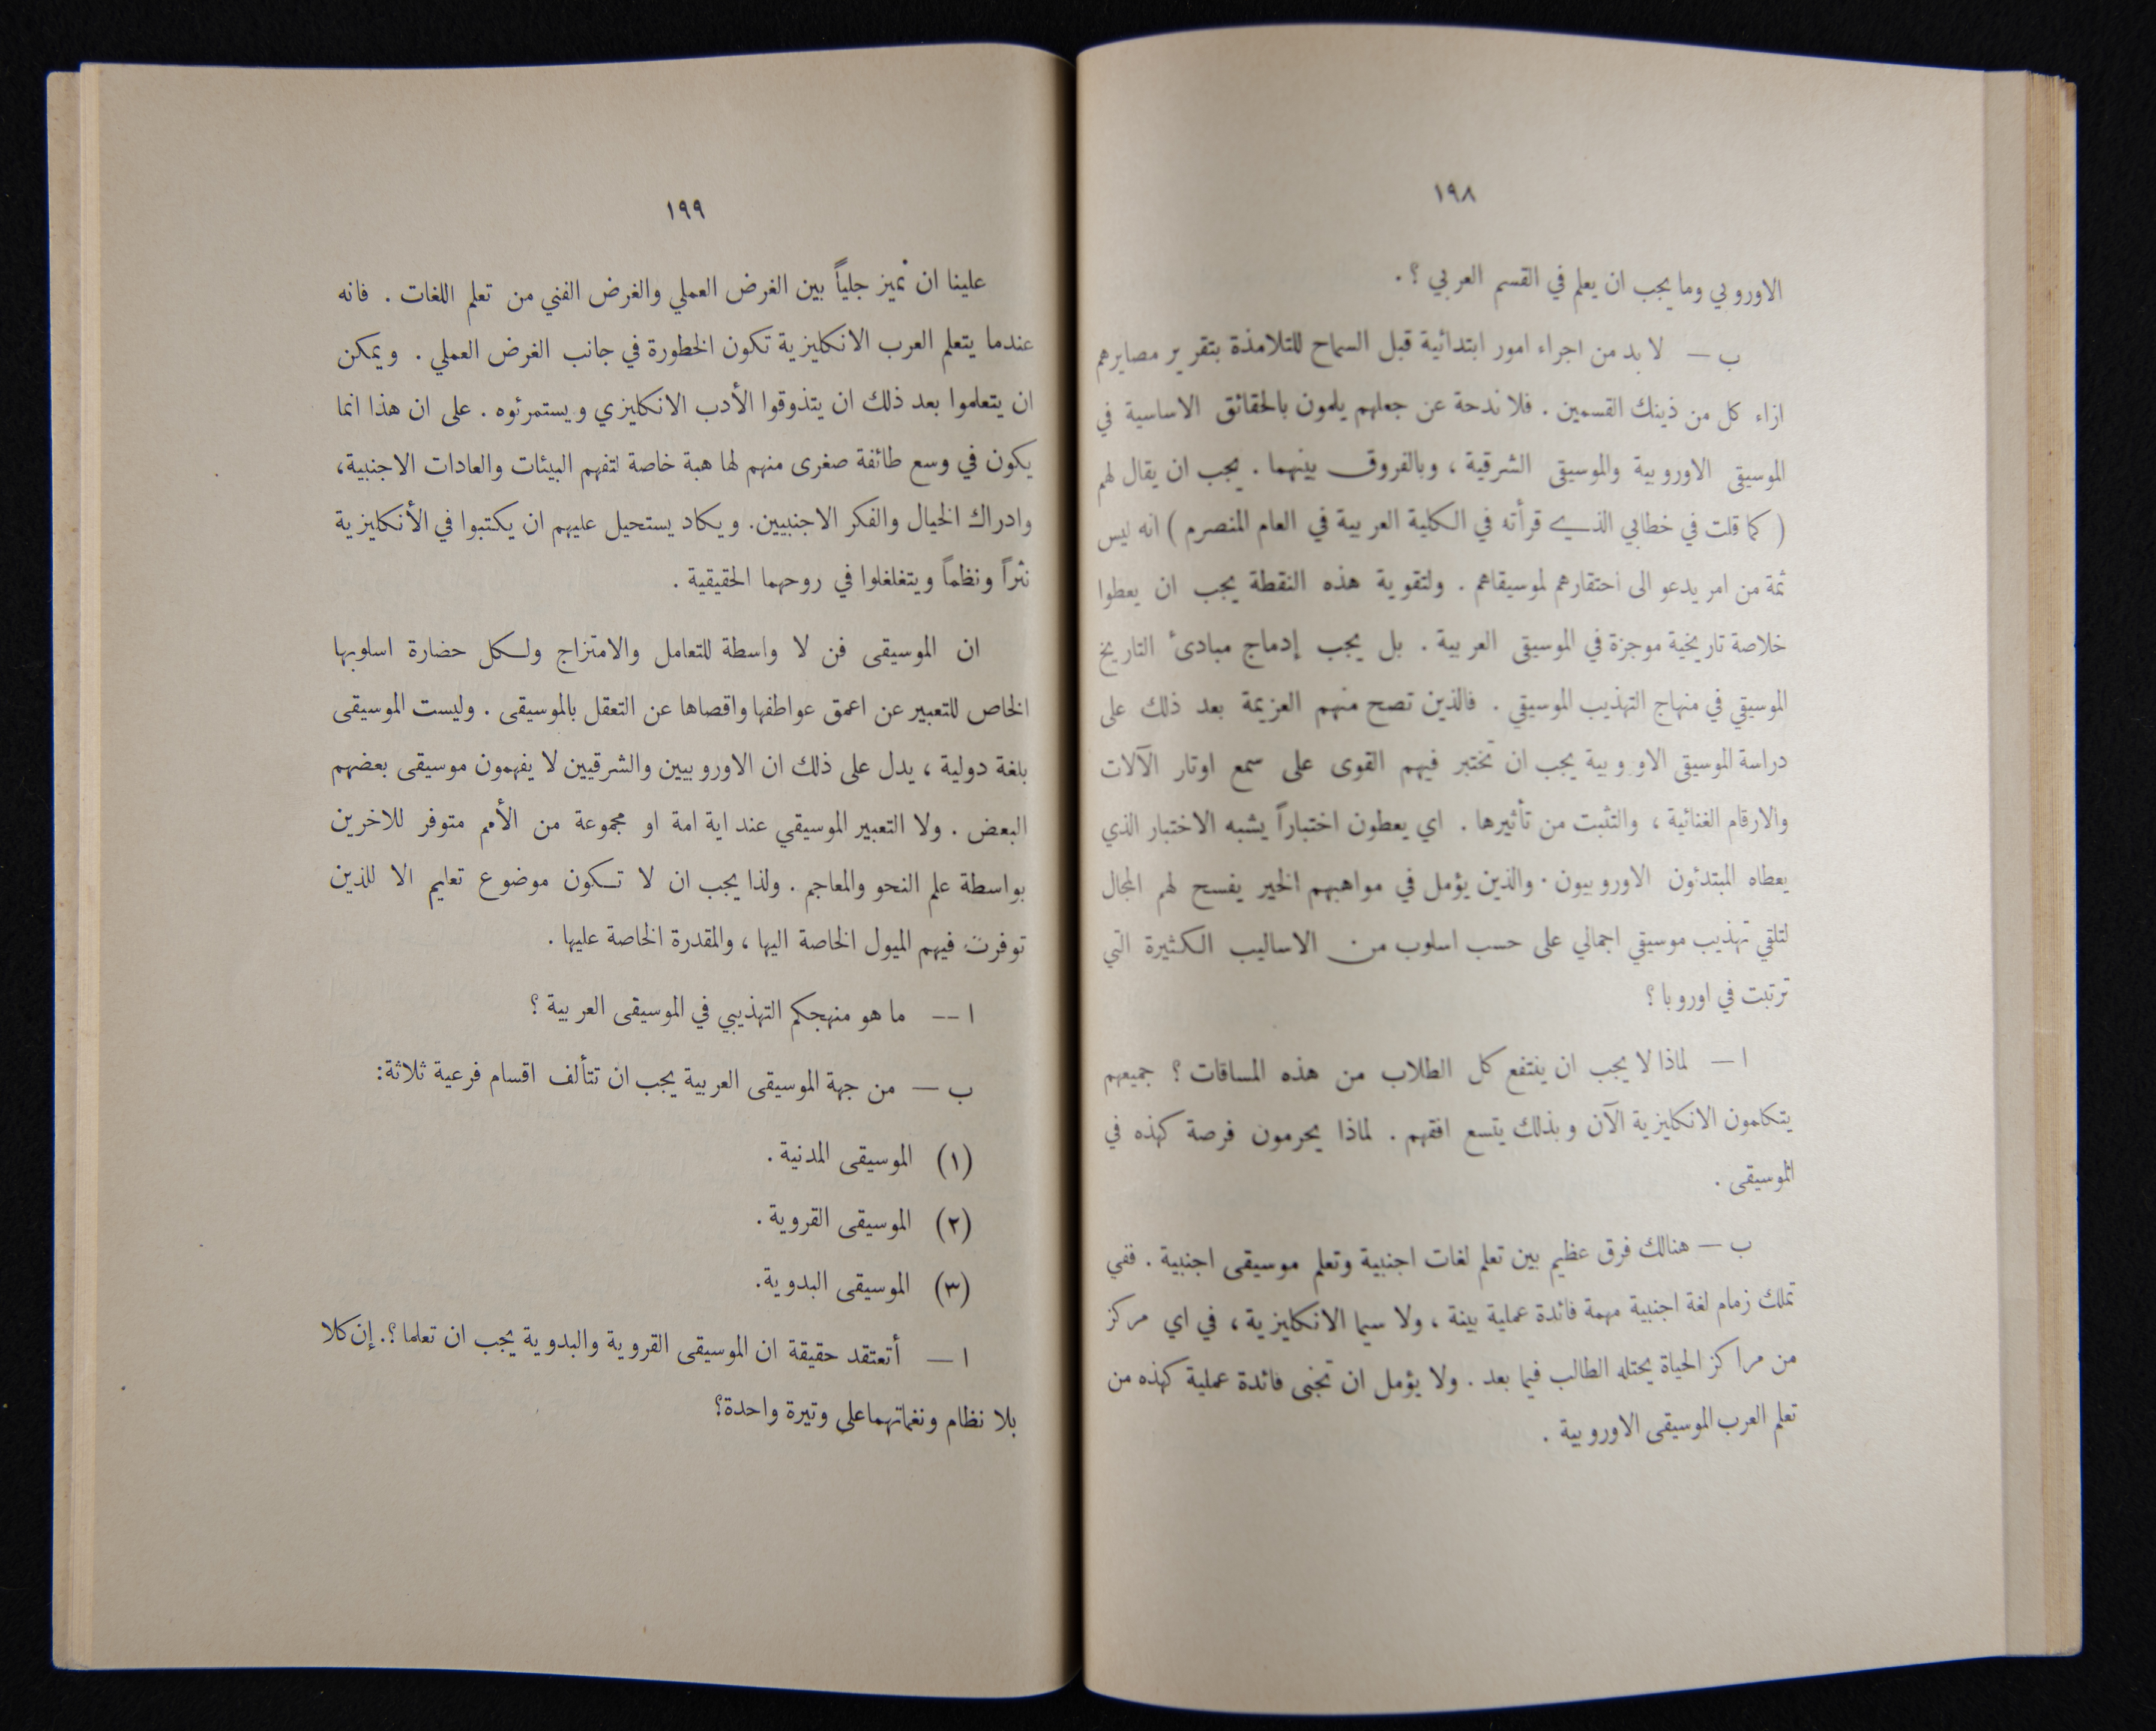 ١٩٨
الاوروبي وما يجب ان يعلم في القسم العربي ؟ .
ب — لا بد من اجراء امور ابتدائية قبل السماح للتلامذة بتقرير مصايرهم
ازاء كل من ذينك القسمين . فلا ندحة عن جعلهم يلمون بالحقائق الاساسية في
الموسيقى الاوروبية والموسيقى الشرقية ، وبالفروق بينهما . يجب ان يقال لهم
( كما قلت في خطابي الذي قرأته في الكلية العربية في العام المنصرم ) انه ليس
ثمة من امر يدعو الى احتقارهم لموسيقاهم . ولتقوية هذه النقطة يجب ان يعطوا
خلاصة تاريخية موجزة في الموسيقى العربية . بل يجب إدماج مبادئ التاريخ
الموسيقي في منهاج التهذيب الموسيقي . فالذين تصح منهم العزيمة بعد ذلك على
دراسة الموسيقى الاو وبية يجب ان تختبر فيهم القوى على سمع اوتار الآلات
والارقام الغنائية ، والتثبت من تأثيرها . اي يعطون اختباراً يشبه الاختبار الذي
يعطاه المبتدئون الاوروبيون . والذين يؤمل في مواهبهم الخير يفسح لهم المجال
لتلقي تهذيب موسيقي اجمالي على حسب اسلوب من الاساليب الكثيرة التي
ترتبت في اوروبا ؟
ا — لماذا لا يجب ان ينتفع كل الطلاب من هذه المساقات ؟ جميعهم
يتكلمون الانكليزية الآن وبذلك يتسع افقهم . لماذا يحرمون فرصة كهذه في
الموسيقى .
ب — هنالك فرق عظيم بين تعلم لغات اجنبية وتعلم موسيقى اجنبية . ففي
تملك زمام لغة اجنبية مهمة فائدة عملية بينة ، ولا سيما الانكليزية ، في اي مركز
من مراكز الحياة يحتله الطالب فيما بعد . ولا يؤمل ان تجنى فائدة عملية كهذه من
تعلم العرب الموسيقى الاوروبية .
١٩٩
علينا ان نميز جلياً بين الغرض العملي والغرض الفني من تعلم اللغات . فانه
عندما يتعلم العرب الانكليزية تكون الخطورة في جانب الغرض العملي . ويمكن
ان يتعلموا بعد ذلك ان يتذوقوا الأدب الانكليزي ويستمرئوه . على ان هذا انما
يكون في وسع طائفة صغرى منهم لها هبة خاصة لتفهم البيئات والعادات الاجنبية ،
وادراك الخيال والفكر الاجنبيين . ويكاد يستحيل عليهم ان يكتبوا في الأنكليزية
نثراً ونظماً ويتغلغلوا في روحهما الحقيقية .
ان الموسيقى فن لا واسطة للتعامل والامتزاج ولكل حضارة اسلوبها
الخاص للتعبير عن اعمق عواطفها واقصاها عن التعقل بالموسيقى . وليست الموسيقى
بلغة دولية ، يدل على ذلك ان الاوروبيين والشرقيين لا يفهمون موسيقى بعضهم
البعض . ولا التعبير الموسيقي عند اية امة او مجموعة من الأمم متوفر للاخرين
بواسطة علم النحو والمعاجم . ولذا يجب ان لا تكون موضوع تعليم الا للذين
توفرت فيهم الميول الخاصة اليها ، والمقدرة الخاصة عليها .
ا -- ما هو منهجكم التهذيبي في الموسيقى العربية ؟
ب — من جهة الموسيقى العربية يجب ان تتألف اقسام فرعية ثلاثة :
(١) الموسيقى المدنية .
(٢) الموسيقى القروية .
(٣) الموسيقى البدوية .
ا — أتعتقد حقيقة ان الموسيقى القروية والبدوية يجب ان تعلما ؟ . إن كلا
بلا نظام ونغماتهما على وتيرة واحدة ؟